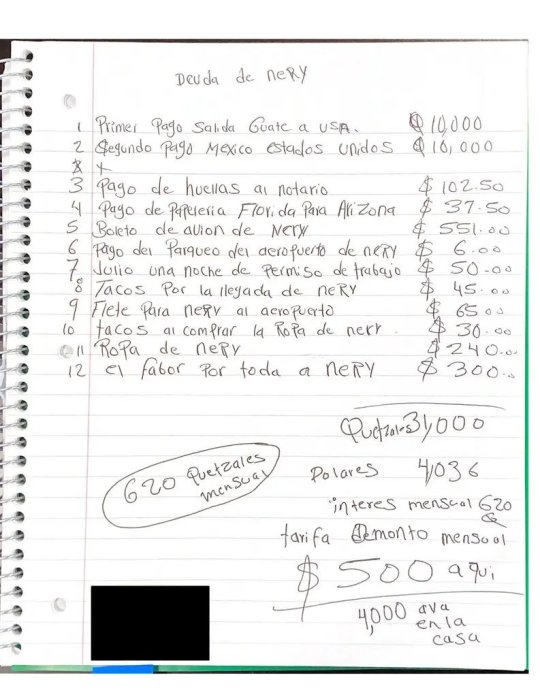 Deuda de neRy
1 Primer Pago Salida Guate a USA. $ 10,000
2 Segundo Pago Mexico estados unidos $ 10,000
3 Pago de huellas al notario $ 102.50
4 Pago de Papeleria Florida Para Arizona $ 37.50
5 Boleto de avion de Nery $ 551.00
6 Pago del Parqueo del aeropuerto de neRy $ 6.00
7 Julio una noche de Permiso de trabajo $ 50.00
8 Tacos Por la llegada de neRy $ 45.00
9 Flete Para nery al aeropuerto $ 65.00
10 tacos al comprar la Ropa de nery. $ 30.00
11 Ropa de neRy $ 240.00
12 el fabor Por toda a neRy $ 300.00
Quetzales 31,000
620 Quetzales
mensual
Dolares 4,036
interes mensual 620
tarifa monto mensual
$ 500 aqui
4,000 aya
en la
casa